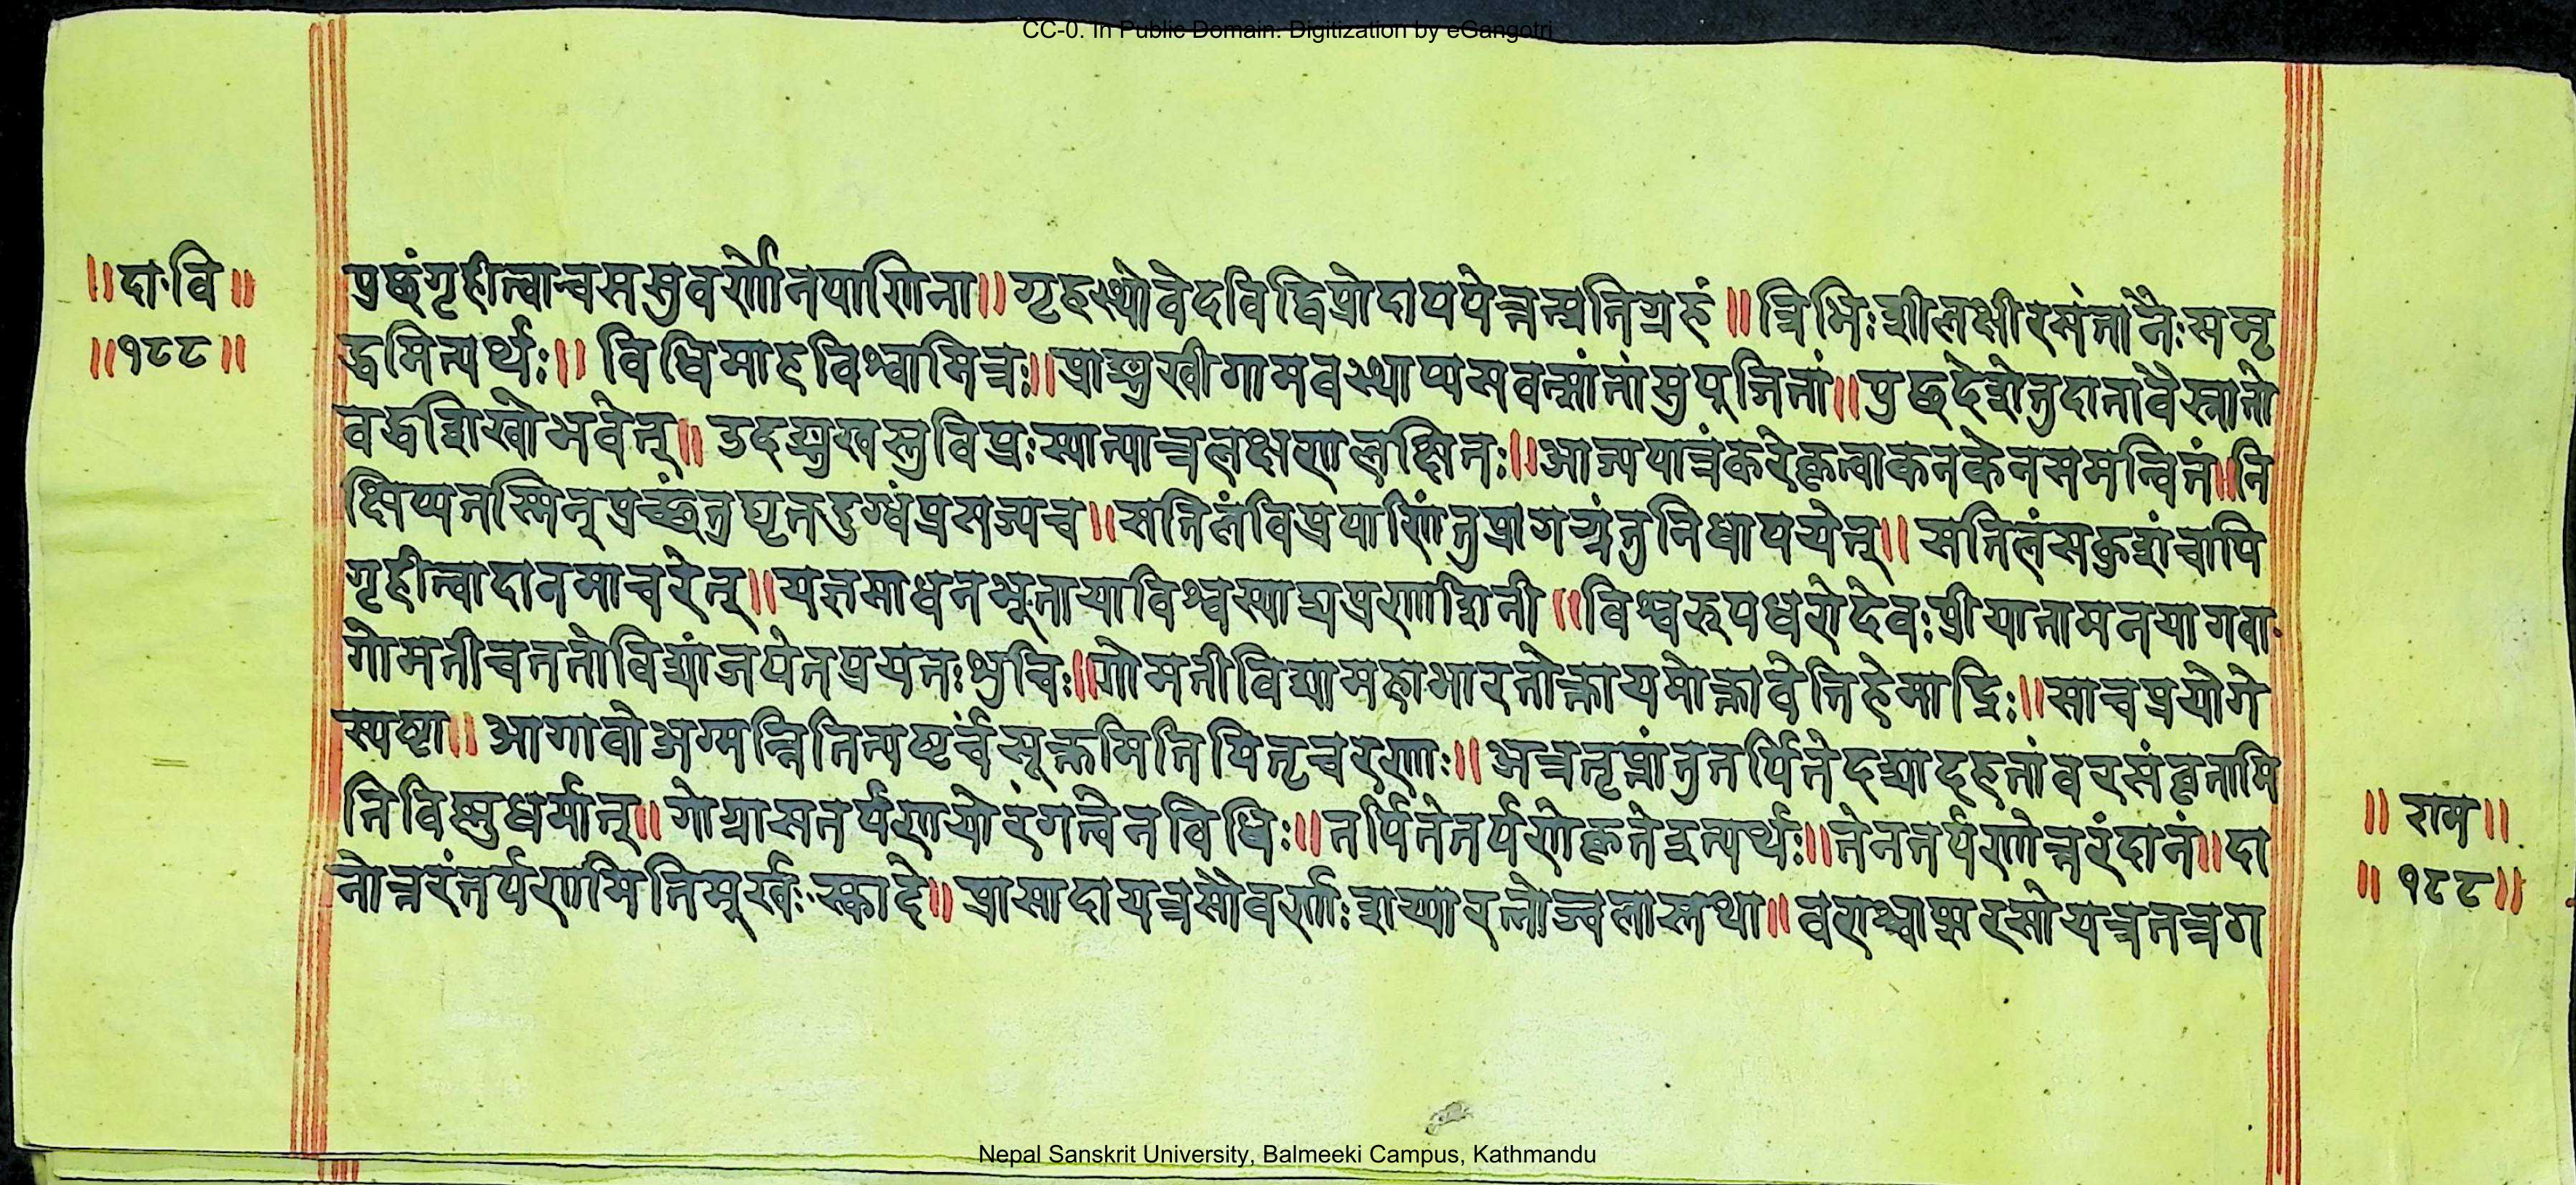 CC-0. In Public Domain. Digitization by eGangotri
॥दा॰वि॥
॥१८८॥
पुछंगृहीत्वाचससुवर्णेनपाणिना॥गृहस्थोवेदविद्विप्रोदापयेत्तत्प्रतिग्रहं॥त्रिभिःशीलक्षीरसंतानैःसमृ
द्धमित्यर्थः॥विधिमाहविश्वामित्रः॥प्राङ्मुखीगामवस्थाप्यसवत्सांतांसुपूजितां॥पुछदेशेतुदातावैस्नातो
बद्धशिखोभवेत्॥उदङ्मुखस्तुविप्रःस्यात्पात्रलक्षणलक्षितः॥आज्यपात्रंकरेकृत्वाकनकेनसमन्वितं॥नि
क्षिप्यतस्मिन्पुच्छंतुघृतदुग्धंप्रसज्यच॥सतिलंविप्रपाणिंतुप्रागग्रंतुनिधापयेत्॥सतिलंसकुशंचापि
गृहीत्वादानमाचरेत्॥यज्ञसाधनभूतायाविश्वस्याघप्रणाशिनी॥विश्वरूपधरोदेवःप्रीयातामनयागवा॰
गोमतीचततोविद्यांजपेतप्रयतःशुचिः॥गोमतीविद्यामहाभारतोक्तायमोक्तावेतिहेमाद्रिः॥साचप्रयोगे
स्पष्टा॥आगावोअग्मन्नितित्यष्टर्चंसूक्तमितिपितृचरणाः॥अत्रतृप्तांतुतर्पितेदद्यादहतांवरसंवृतामि
तिविष्णुधर्मात्॥गोग्रासतर्पणयोरंगत्वेनविधिः॥तर्पितेतर्पणेकृतेइत्यर्थः॥तेनतर्पणोत्तरंदानं॥दा
नोत्तरंतर्पणमितिमूर्खः॰स्कांदे॥प्रासादायत्रसौवर्णाःशय्यारत्नोज्वलास्तथा॥वराश्चाप्सरसोयत्रतत्रग
॥ राम॥
॥ १८८॥
Nepal Sanskrit University, Balmeeki Campus, Kathmandu